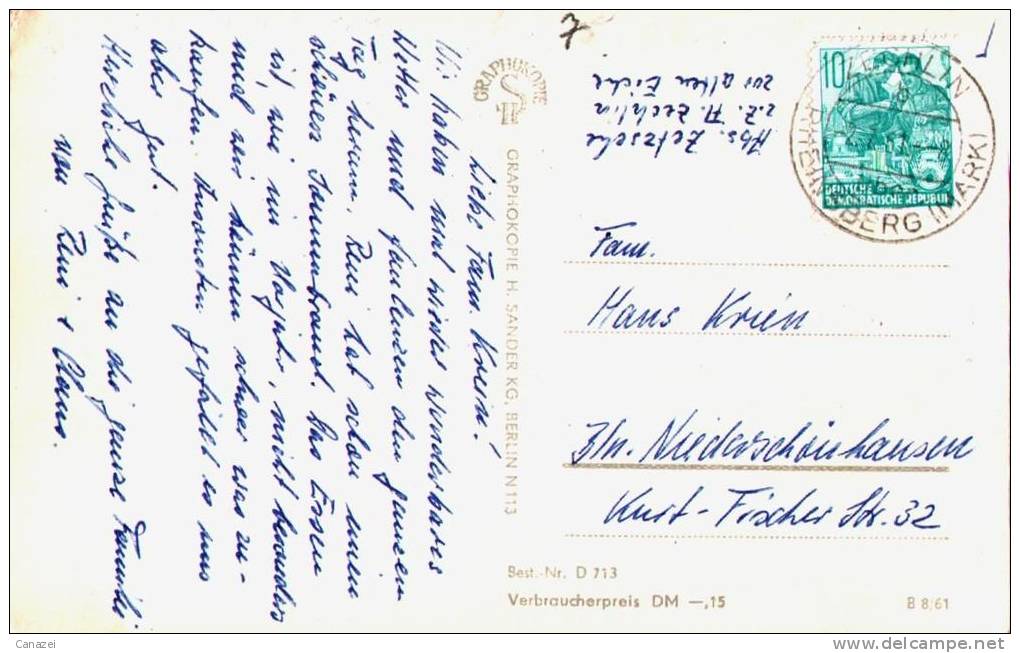 7
Liebe Fam. Krien!
Wir haben mal wieder wunderbares
Wetter und faulenzen den ganzen
Tag herum. Reni hat schon einen
schönen Sonnenbrand. Das Essen
ist, wie im Vorjahr, nicht besonders
und wir können schwer was zu-
kaufen. Ansonsten gefällt es uns
aber gut.
Herzliche Grüße an die ganze Familie
von Reni + Claus.
GRAPHOKOPIE
GRAPHOKOPIE H. SANDER KG, BERLIN N 113
Abs. Zetzsche
z.Z. Fl. Zechlin
zur alten Eiche
10
5
DEUTSCHE
DEMOKRATISCHE REPUBLIK
ZECHLIN
RHEINSBERG (MARK)
Fam.
Hans Krien
Bln. Niederschönhausen
Kurt-Fischer Str. 32
Best.-Nr. D 713
Verbraucherpreis DM —,15
B 8/61
Canazei
http://www.delcampe.net